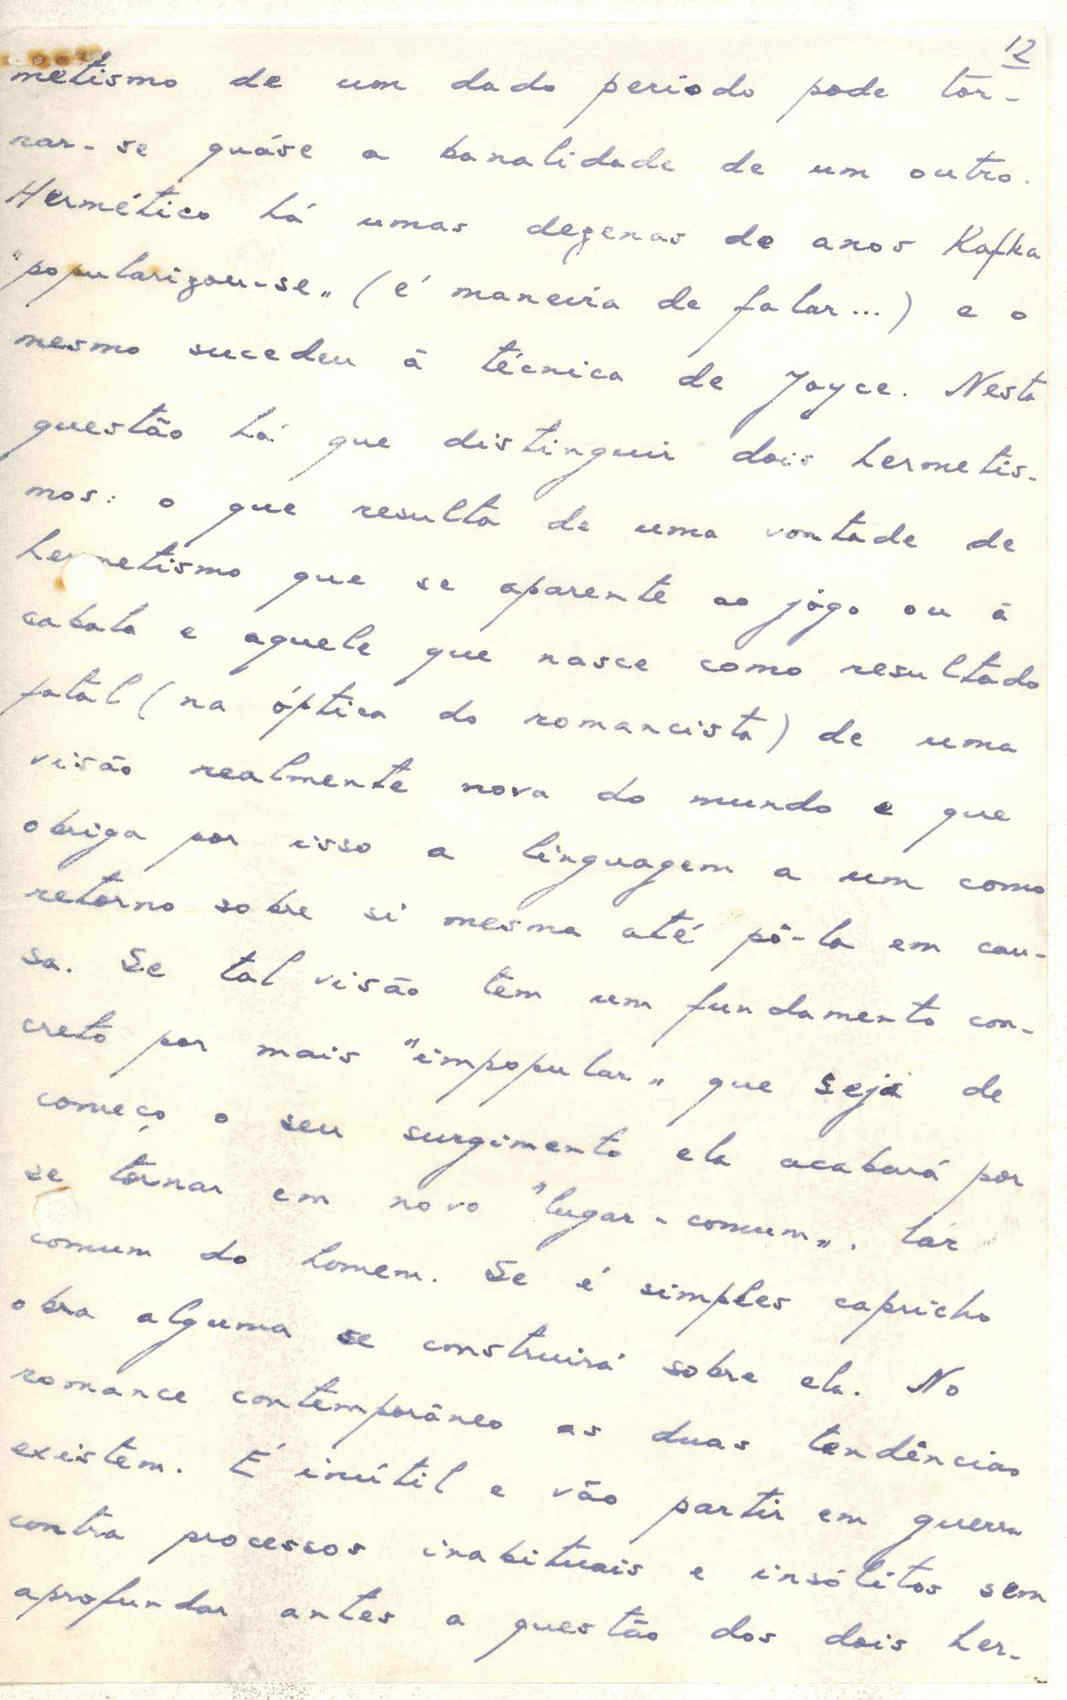 12
metismo de um dado periodo pode tor-
nar-se quáse a banalidade de um outro.
Hermético há umas dezenas de anos Kafka
"popularizou-se„ (é maneira de falar...) e o
mesmo sucedeu á técnica de Joyce. Nesta
questão há que distinguir dois hermetis-
mos: o que resulta de uma vontade de
hermetismo que se aparente ao jôgo ou á
cabala e aquele que nasce como resultado
fatal (na óptica do romancista) de uma
visão realmente nova do mundo e que
obriga por isso a linguagem a um como
retorno sobre si mesma até pô-la em cau-
sa. Se tal visão tem um fundamento con-
creto por mais "impopular„ que seja de
começo o seu surgimento ela acabará por
se tornar em novo "lugar-comum„. lar
comum do homem. Se é simples capricho
obra alguma se construirá sobre ela. No
romance contemporâneo as duas tendências
existem. É inútil e vão partir em guerra
contra processos inabituais e insólitos sem
aprofundar antes a questão dos dois her-